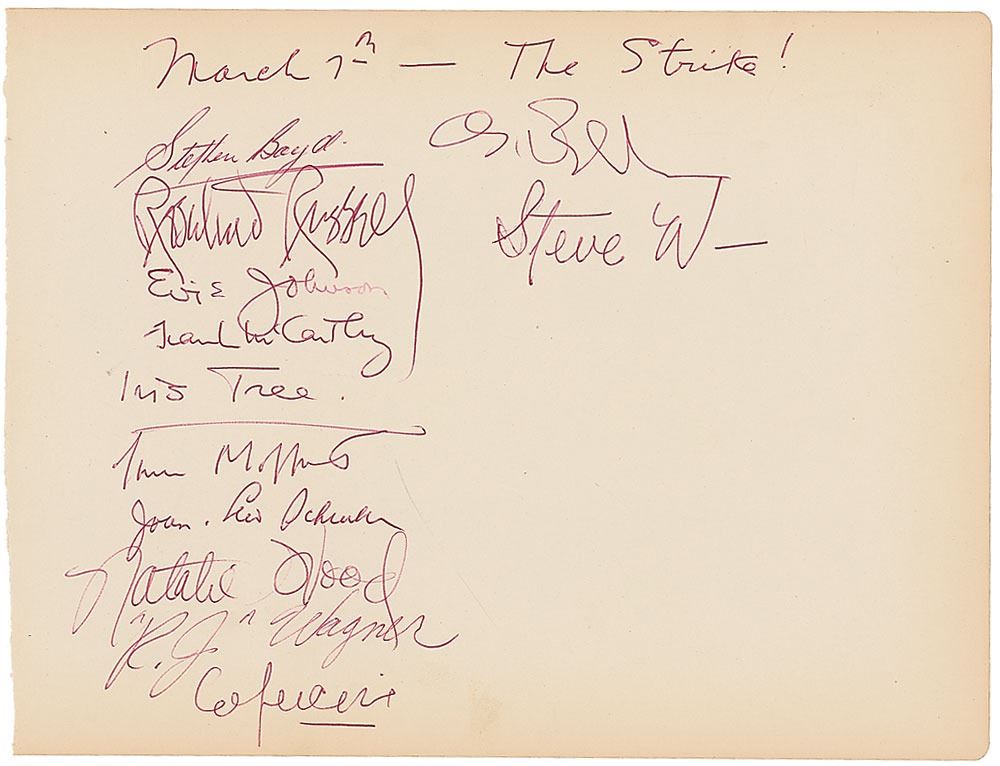 March 7th — The Strike!
Stephen Boyd.
Rosalind Russell
Evie Johnson
Frank McCarthy
Iris Tree.
Joan
Natalie Wood
"R.J." Wagner
Steve W—